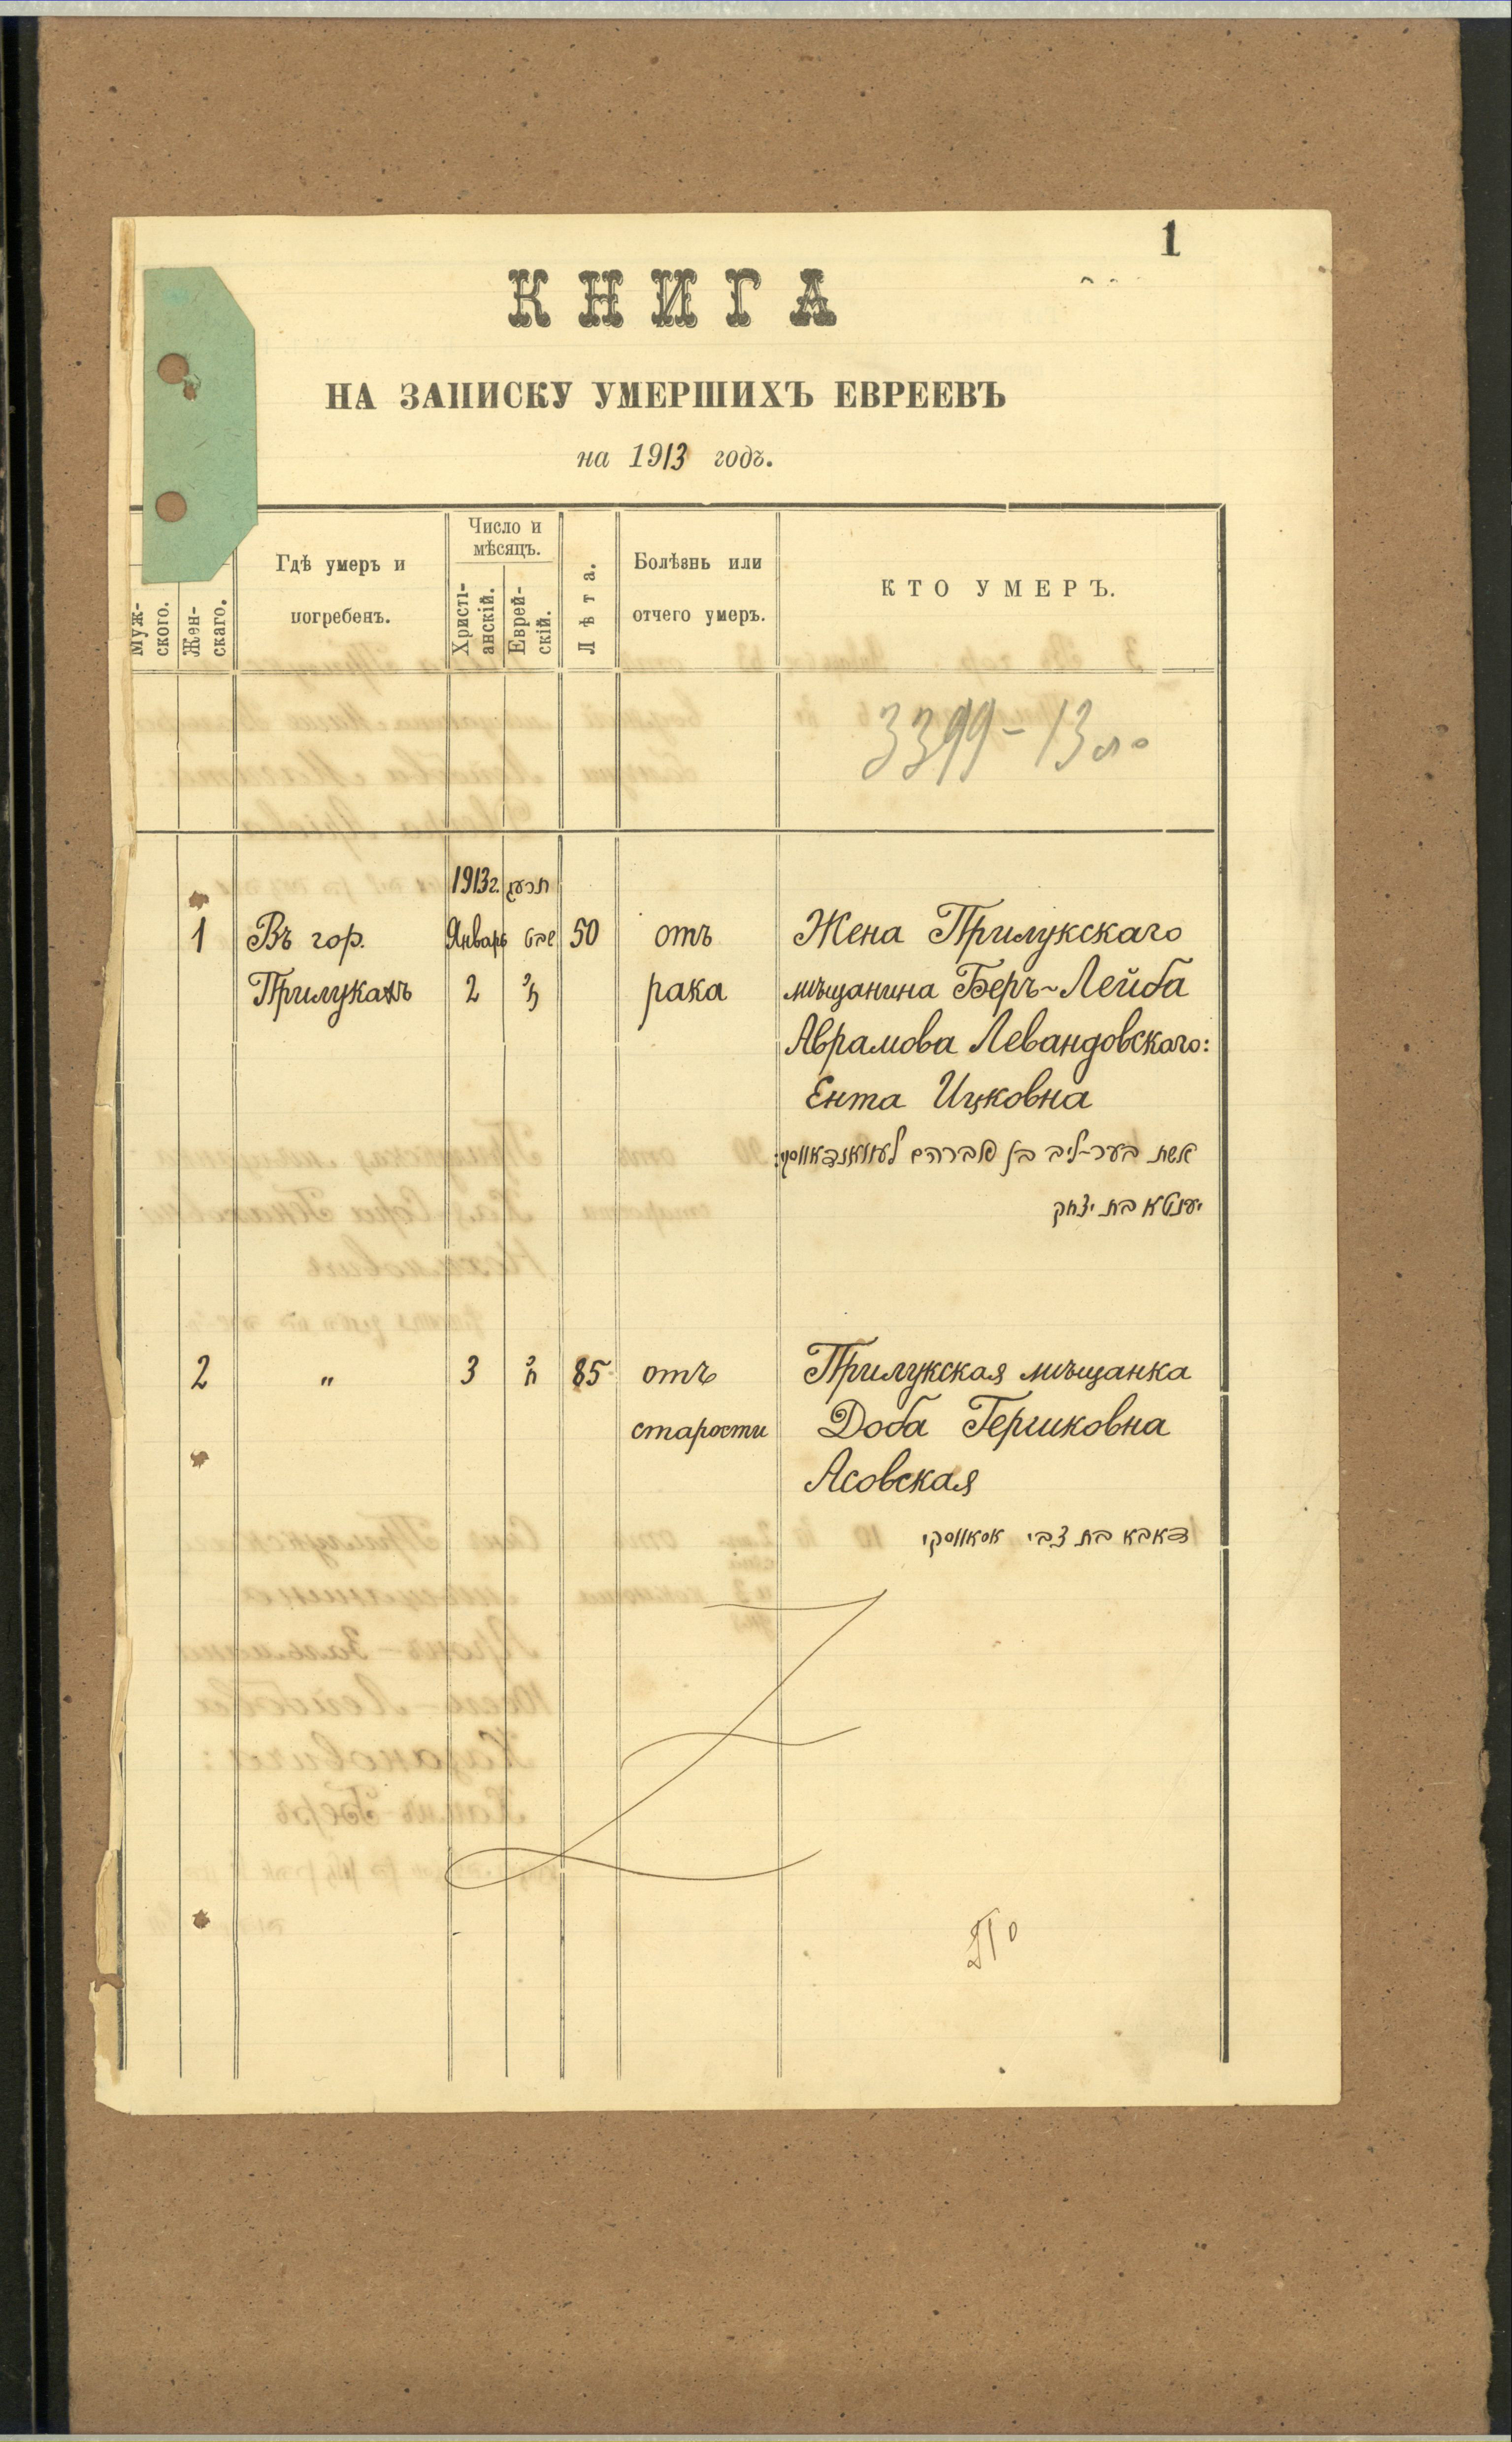 1
КНИГА
НА ЗАПИСКУ УМЕРШИХЪ ЕВРЕЕВЪ
на 1913 годъ.
Муж-
ского.
Жен-
скаго.
Гдѣ умеръ и
погребенъ.
Число и
мѣсяцъ.
Христі-
анскій.
Еврей-
скій.
Лѣта.
Болѣзнь или
отчего умеръ.
КТО УМЕРЪ.
3399-13
1913г. תרעג
1 Въ гор. Январь שבט 50 отъ Жена Прилукскаго
Прилукахъ 2 рака мѣщанина Беръ-Лейба
Аврамова Левандовскаго:
Ента Ицковна
אשת בער-ליב בן אברהם לעוואנדאווסקי:
יענטא בת יצחק
2 " 3 85 отъ Прилукская мѣщанка
старости Доба Гершковна
Асовская
דאבא בת צבי אסאווסקי